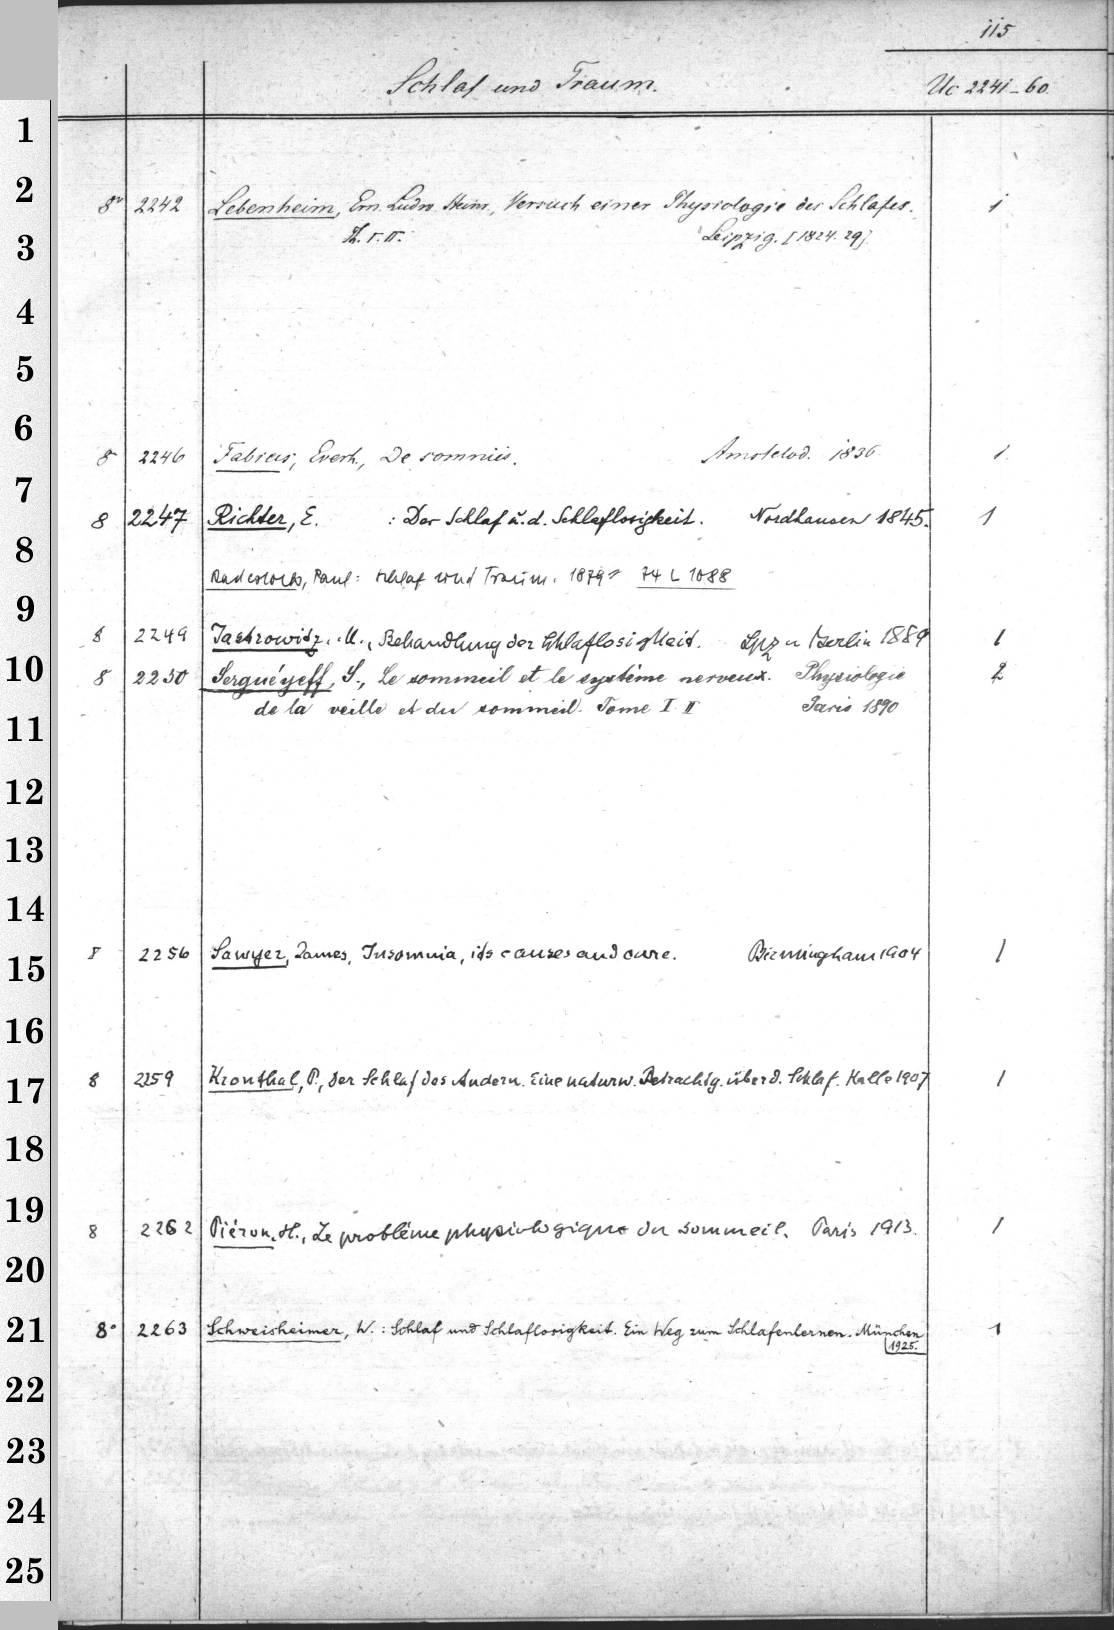 115
Schlaf und Traum.
Uc 2241-60
1
2
8º 2242 Lebenheim, Ern. Ludw. Heinr., Versuch einer Physiologie des Schlafes. 1
Th. I. II. Leipzig. [1824.29]
3
4
5
6
8 2246 Fabius, Everh., De somniis. Amstelod. 1836 1.
7
8 2247 Richter, E. : Der Schlaf u. d. Schlaflosigkeit. Nordhausen 1845. 1
8
Radestock, Paul: Schlaf und Traum. 1879 74 L 1088
9
8 2249 Jastrowitz, M., Behandlung der Schlaflosigkeit. Lpz u Berlin 1889 1
10
8 2250 Serguéyeff, S., Le sommeil et le système nerveux. Physiologie 2
de la veille et du sommeil. Tome I. II Paris 1890
11
12
13
14
8 2256 Sawyer, James, Insomnia, its causes and cure. Birmingham 1904 1
15
16
17
8 2259 Kronthal, P., Der Schlaf des Andern. Eine naturw. Betrachtg. über d. Schlaf. Halle 1907 1
18
19
8 2262 Piéron, H., Le problème physiologique du sommeil. Paris 1913. 1
20
21
8º 2263 Schweisheimer, W. : Schlaf und Schlaflosigkeit. Ein Weg zum Schlafenlernen. München 1
1925.
22
23
24
25